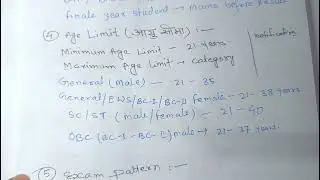 finale year student → mains before result
④ Age Limit (आयु सीमा) :-
Minimum Age Limit - 21 years
Maximum Age Limit → category
notification
General (male) - 21 - 35
General/EWS/BC-I/BC-II female - 21 - 38 years
SC/ST (male/female) - 21 - 40
OBC (BC-I - BC-II) male → 21 - 37 years.
⑤ Exam pattern :-